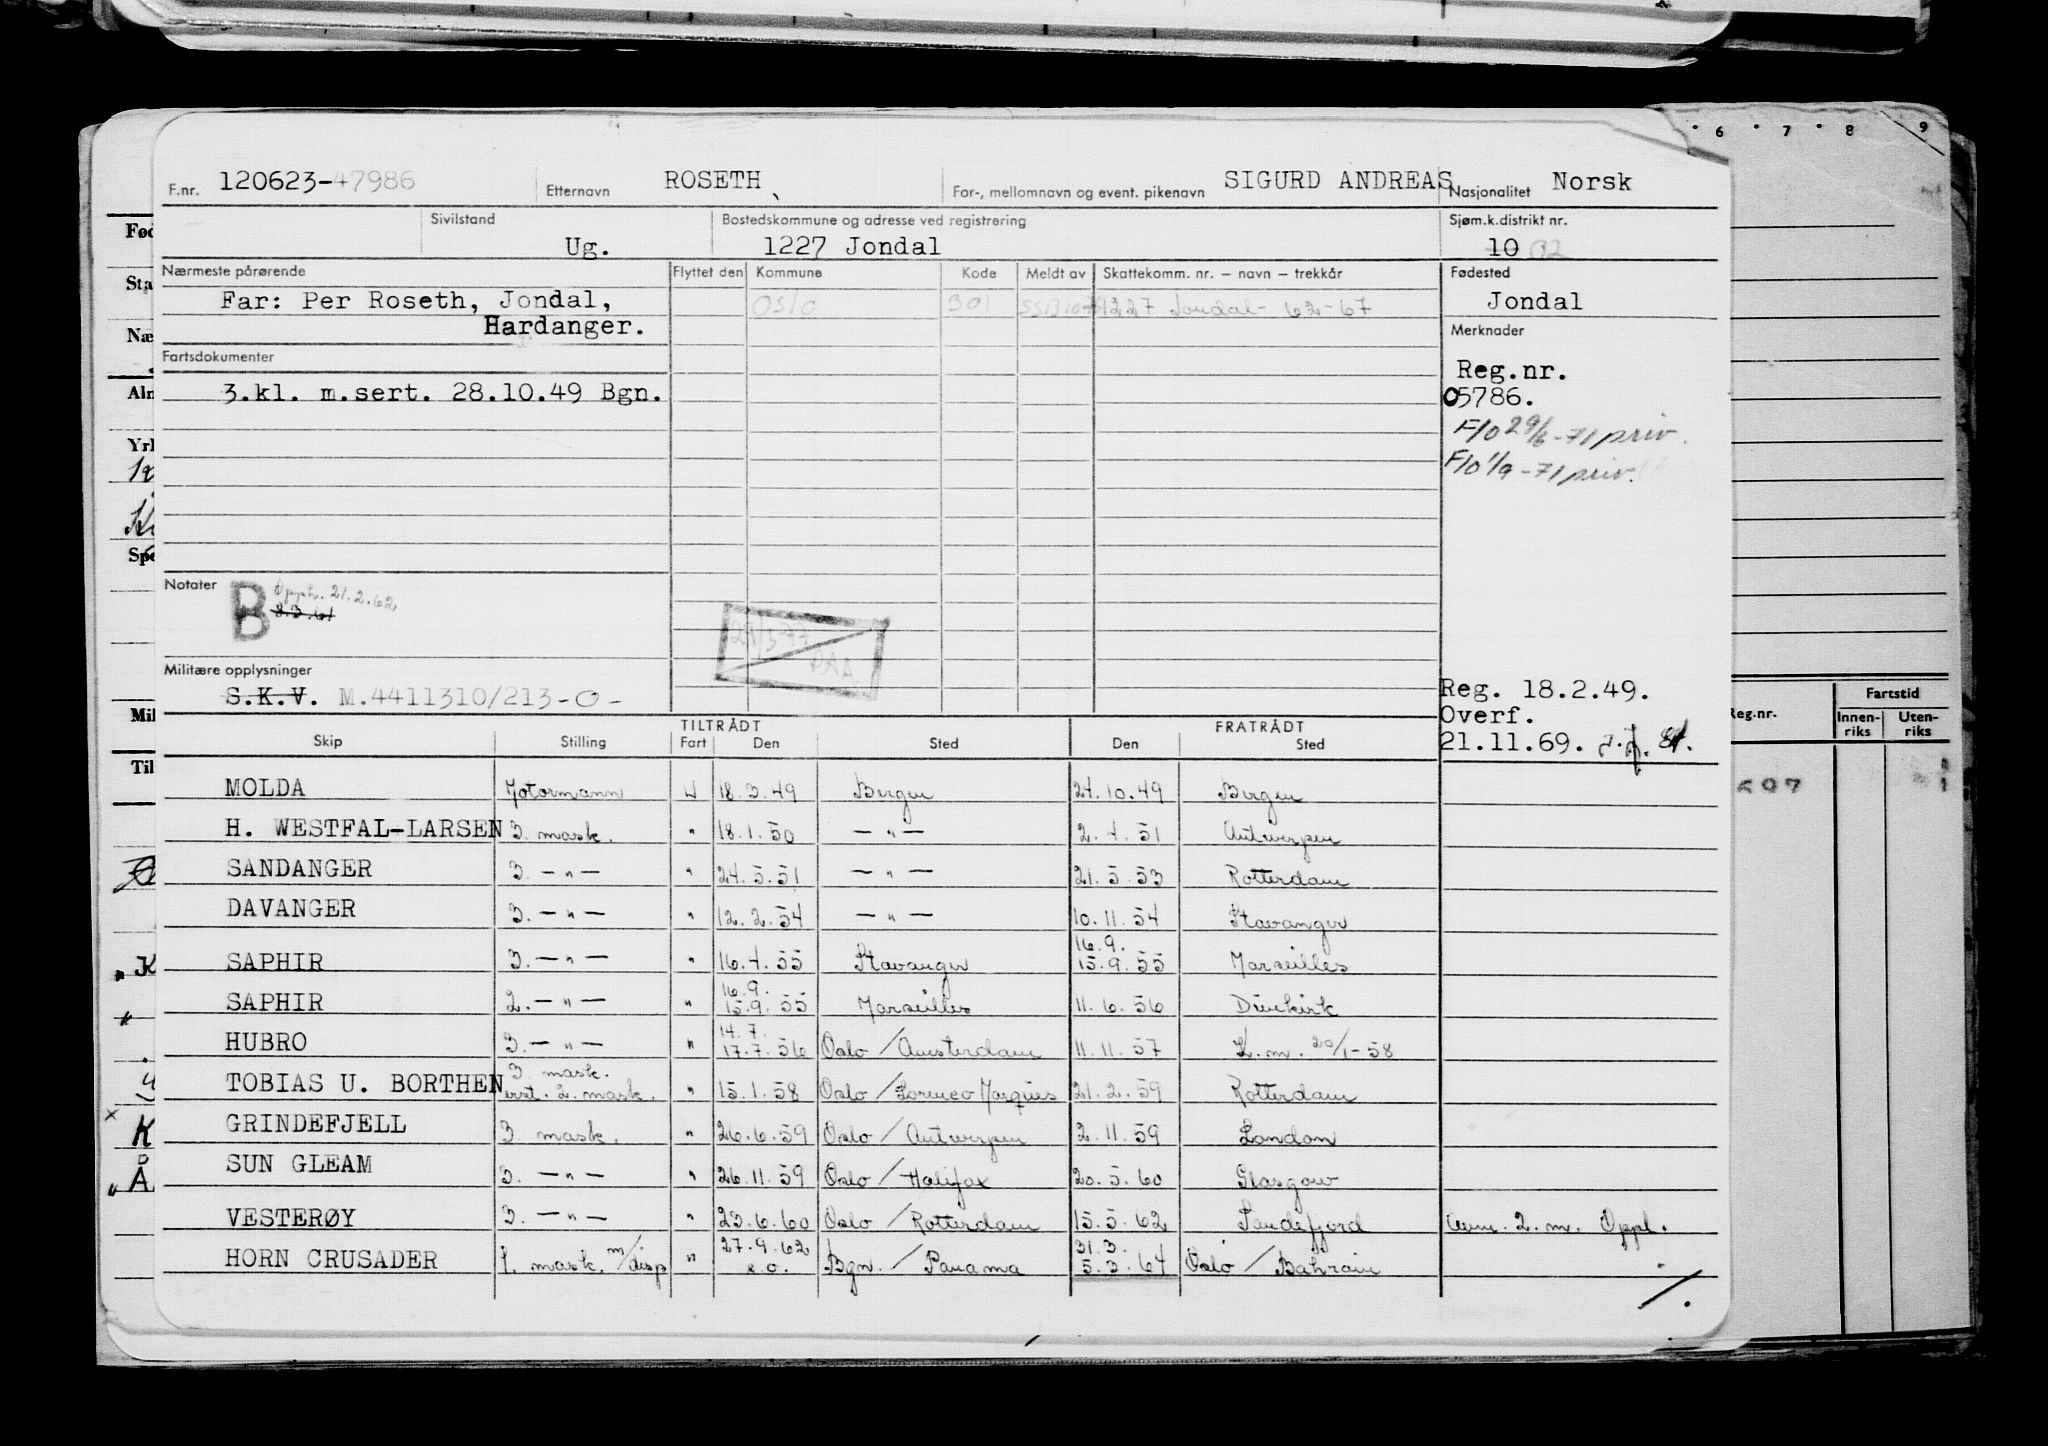 F.nr. 120623-47986 Etternavn ROSETH For-, mellomnavn og event. pikenavn SIGURD ANDREAS Nasjonalitet Norsk
Sivilstand Ug. Bostedskommune og adresse ved registrering 1227 Jondal Sjøm.k.distrikt nr. 10 02
Nærmeste pårørende Flyttet den Kommune Kode Meldt av Skattekomm. nr. – navn – trekkår Fødested
Far: Per Roseth, Jondal, Oslo 301 1227 Jondal - 62-67 Jondal
Hardanger. Merknader
Fartsdokumenter Reg.nr.
3.kl. m.sert. 28.10.49 Bgn. 05786.
F/o 29/6-71 priv.
F/o 1/9-71 priv.
Notater B Opph. 21.2.62
8.3.61
Militære opplysninger
S.K.V. M.4411310/213-0- Reg. 18.2.49.
Overf.
21.11.69.
TILTRÅDT FRATRÅDT
Skip Stilling Fart Den Sted Den Sted
MOLDA Motormann U 18.3.49 Bergen 24.10.49 Bergen
H. WESTFAL-LARSEN 3. mask. " 18.1.50 — " — 2.4.51 Antwerpen
SANDANGER 3. — " — " 24.5.51 — " — 21.5.53 Rotterdam
DAVANGER 3. — " — " 12.2.54 — " — 10.11.54 Stavanger
16.9.
SAPHIR 3. — " — " 16.4.55 Stavanger 15.9.55 Marseilles
16.9.
SAPHIR 2. — " — " 15.9.55 Marseilles 11.6.56 Dünkirk
14.7.
HUBRO 3. — " — " 17.7.56 Oslo / Amsterdam 11.11.57 L.m. 20/1-58
3 mask.
TOBIAS U. BORTHEN erst. 2. mask. " 15.1.58 Oslo / Lorenco Marques 21.2.59 Rotterdam
GRINDEFJELL 3 mask. " 26.6.59 Oslo / Antwerpen 2.11.59 London
SUN GLEAM 3. — " — " 26.11.59 Oslo / Halifax 20.5.60 Glasgow
VESTERØY 3. — " — " 23.6.60 Oslo / Rotterdam 15.5.62 Sandefjord 2. m. Oppl.
27.9.62 31.3.
HORN CRUSADER 1. mask. m/disp " e.o. Bgn. / Panama 5.3.64 Oslo / Bahrain
6 7 8 9
Reg.nr. Fartstid
Innen-riks Uten-riks
697